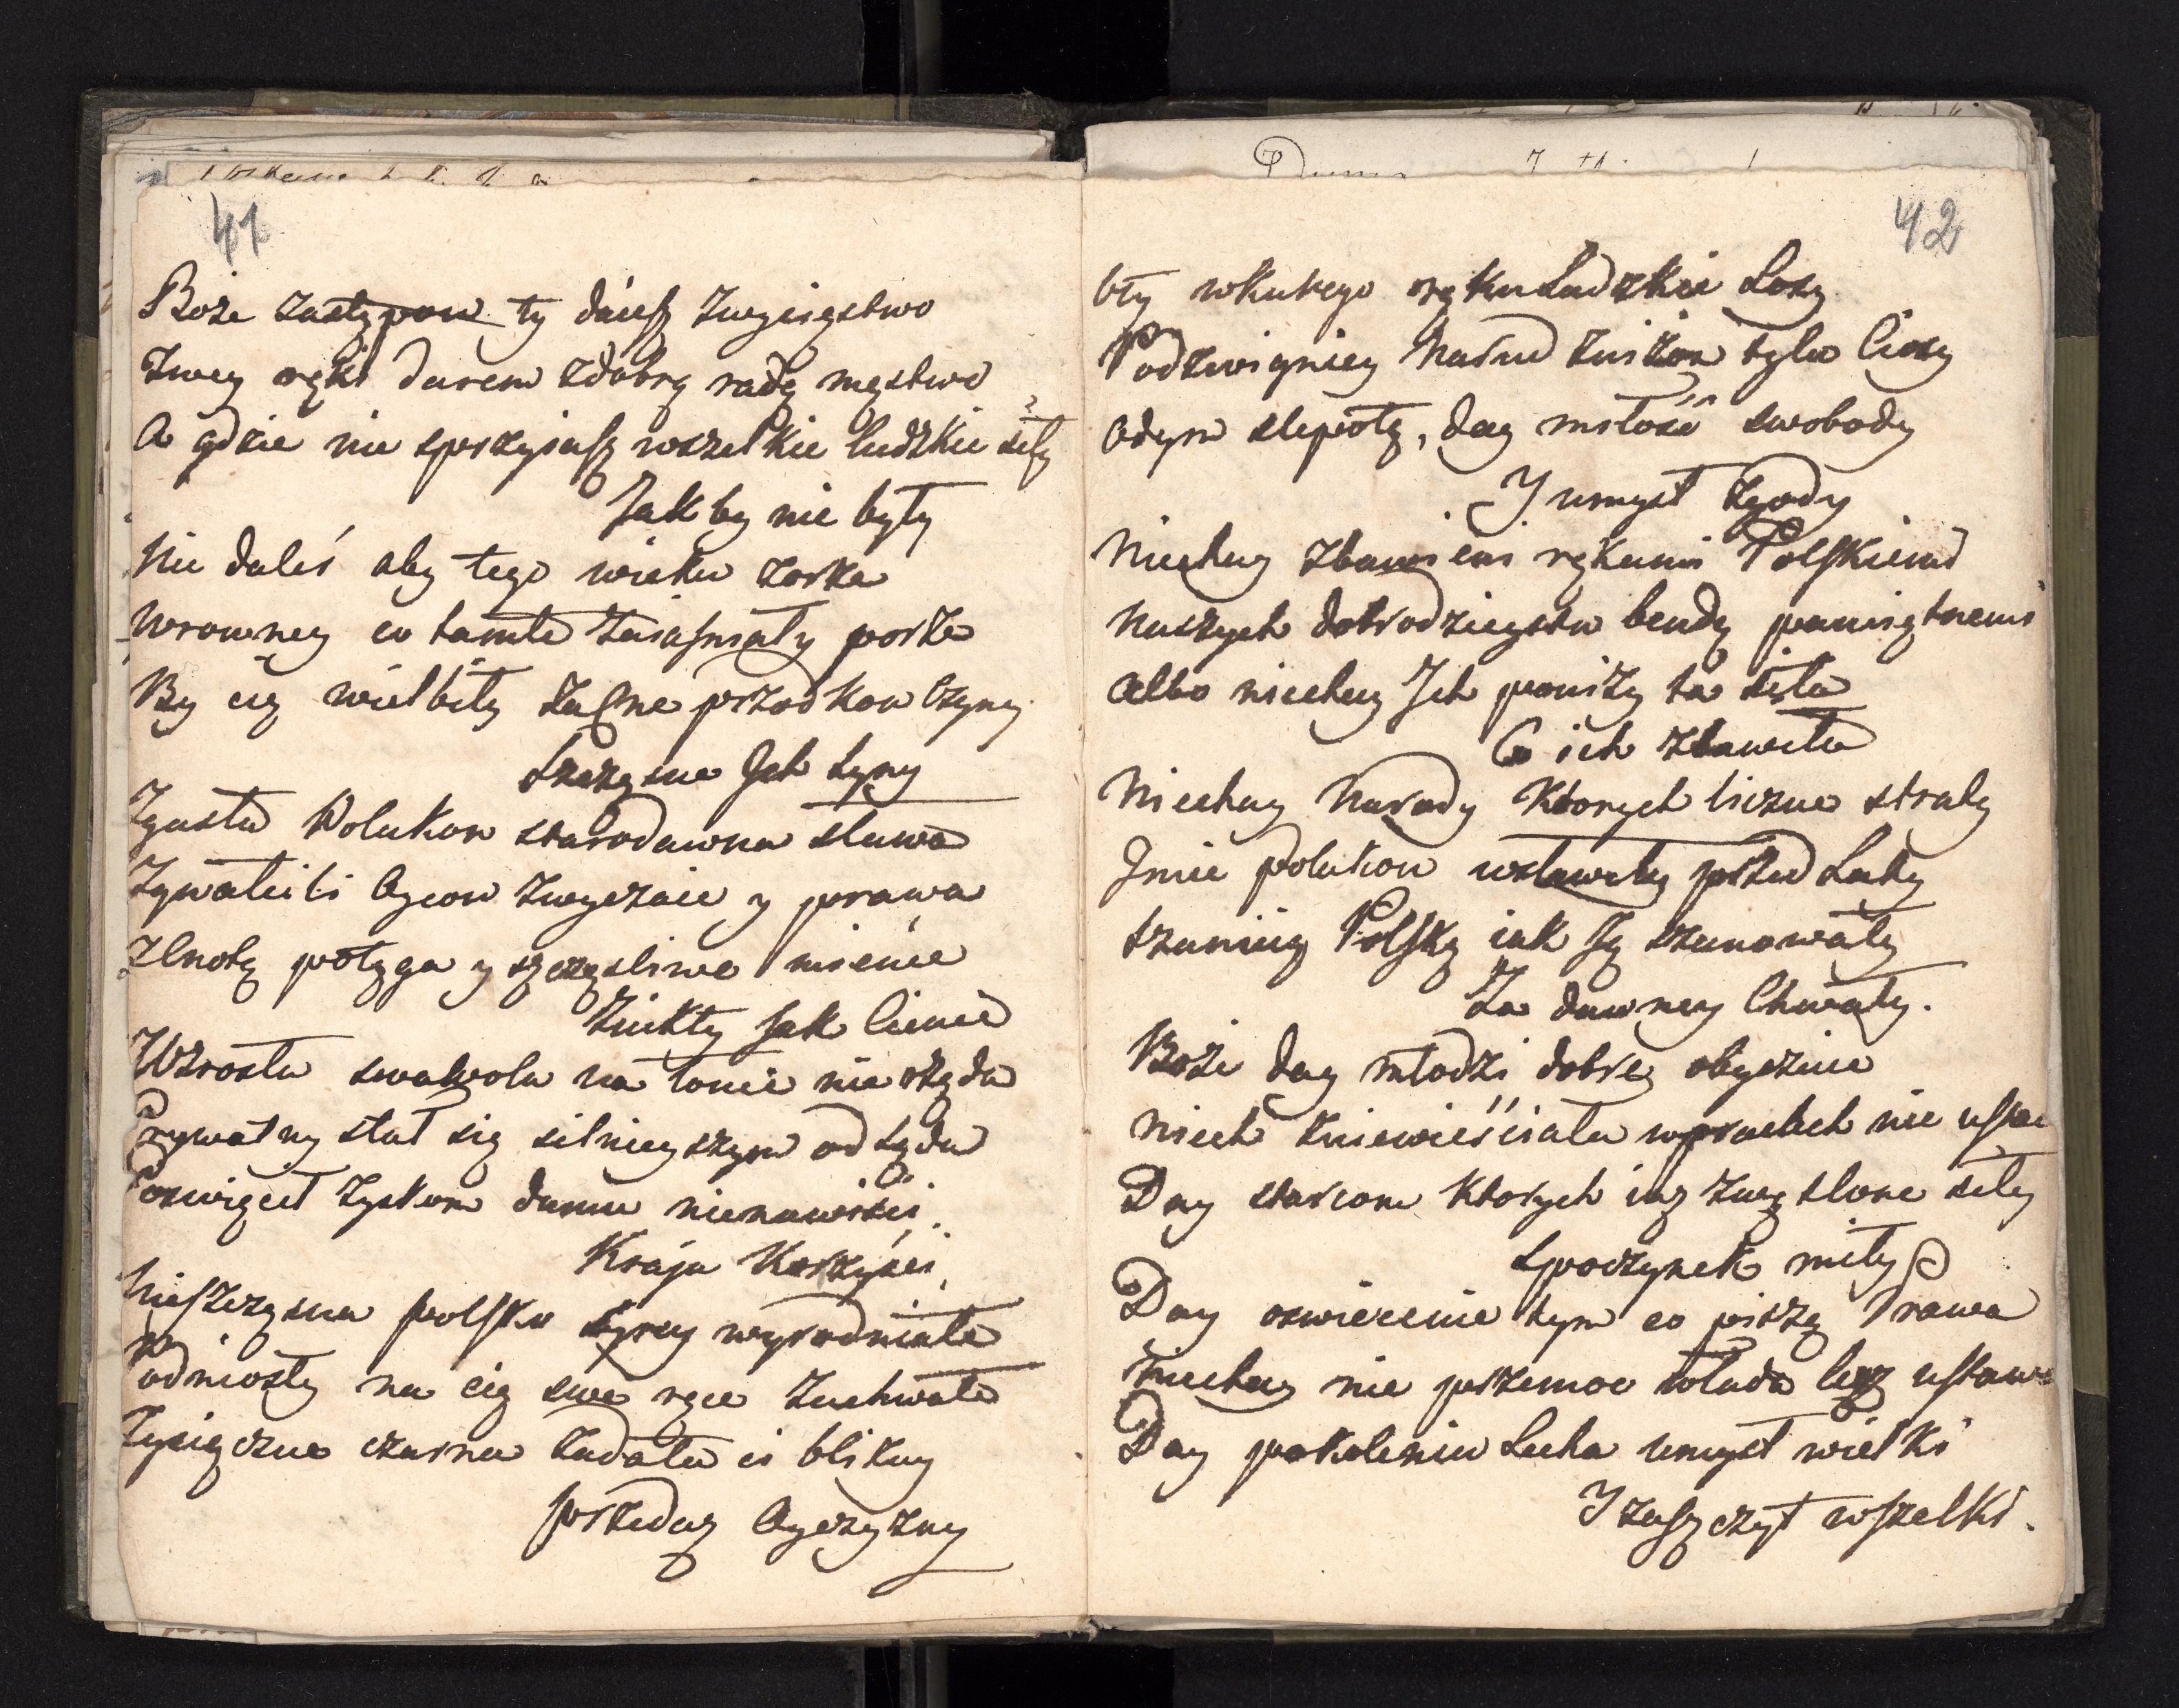 41
Boże zastępow ty daiesz zwycięstwo
Twey ręki darem zdobrą radą męstwo
A gdzie nie sprzyiasz wszelkie ludzkie siły
Jak by nie były
Nie dałeś aby tego wieku zorza
wrowney co tamte zaiasniały porze
By cię wielbiły zacne przodkow Czyny
Szczęsne Jch Syny
Zgasła Polakow starodawna sława
Zgwałcili Oycow zwyczaie y prawa
Zcnotą potęga y szczęsliwe mienie
Znikły Jak Cienie
Wzrosła swawola na łonie nierządu
Prywatny stał się silnieyszym od Sądu
Poswięcił zyskom dumie nienawisci
Kraju Korzyści
Nieszczęsna polsko Syny wyrodniałe
Podniosły na cię swe ręce zuchwałe
Tysiączne czarna zadała ci blizny
przedaż Oyczyzny
42
Ody wktorego ręku Ludzkie Losy
Podzwigniey Narod zniżon tylu Ciosy
Odeym slepotę, day miłość swobody
I umysł zgody
Niechay zbawieni rękami Polskiemi
Naszych dobrodzieystw bendą pamiętnemi
Albo niechay Jch poniży ta siła
Co ich zbawiła
Niechay Narody Ktorych liczne straty
Jmie polakow wsławiły przed Laty
Szanuią Polskę iak Ją szanowały
Za dawney Chwały.
Boże day młodzi dobre obyczaie
niech zniewieściała wpracach nie ustaie
Day starcom Ktorych iuż zwątlone siły
Spoczynek miły
Day oswiecenie tym co piszą Prawa
Niechay nie przemoc włada lecz ustawa
Day pokoleniu Lecha Umysł wielki
I zaszczyt wszelki.